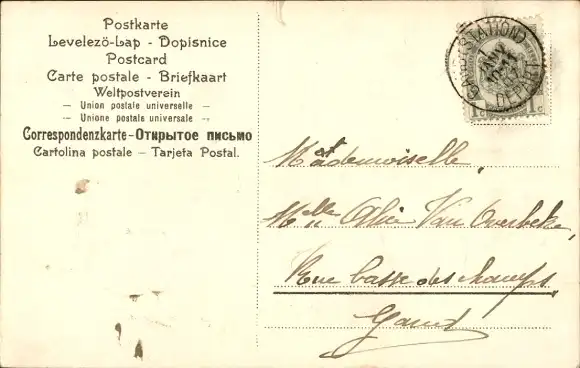 Postkarte
Levelezö-Lap - Dopisnice
Postcard
Carte postale - Briefkaart
Weltpostverein
— Union postale universelle —
— Unione postale universale —
Correspondenzkarte - Открытое письмо
Cartolina postale — Tarjeta Postal.
(STATION)
DEPART
1c 1c
Mademoiselle,
Mlle Van Overbeke,
Rue basse des champs
Gand